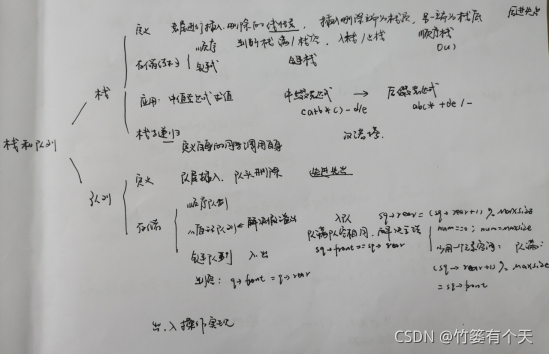 栈和队列
栈
定义 插入删除的线性表,插入删除端为栈顶,另一端为栈底
后进先出
存储
顺序 判断栈满/栈空,入栈/出栈 顺序栈
O(1)
链栈
应用:中缀表达式求值 中缀表达式 → 后缀表达式
c a+b*c)-d/e abc*+de/-
栈与递归
定义自身的同时调用自身 汉诺塔
队列
定义 队尾插入,队头删除 先进先出
存储
顺序队列
循环队列 解决假溢出
入队 sq→rear=(sq→rear+1)%maxsize
队满队空相同,解决方法 num==0;num=maxsize
sq→front==sq→rear
少用一个元素空间:队满:
(sq→rear+1)%maxsize
=sq→front
链队列 入、出
判空:q→front=q→rear
出、入操作变化
CSDN @竹篓有个天